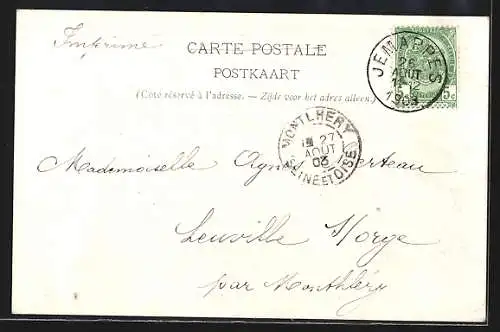 Imprimé
CARTE POSTALE
POSTKAART
(Côté réservé à l'adresse. — Zijde voor het adres alleen.)
JEMAPPES
26
AOUT
12
1903
5c
MONTLHERY
27
AOUT
03
SEINE ET OISE
Mademoiselle Agnès Berteau
Leuville s/orge
par Montlhéry